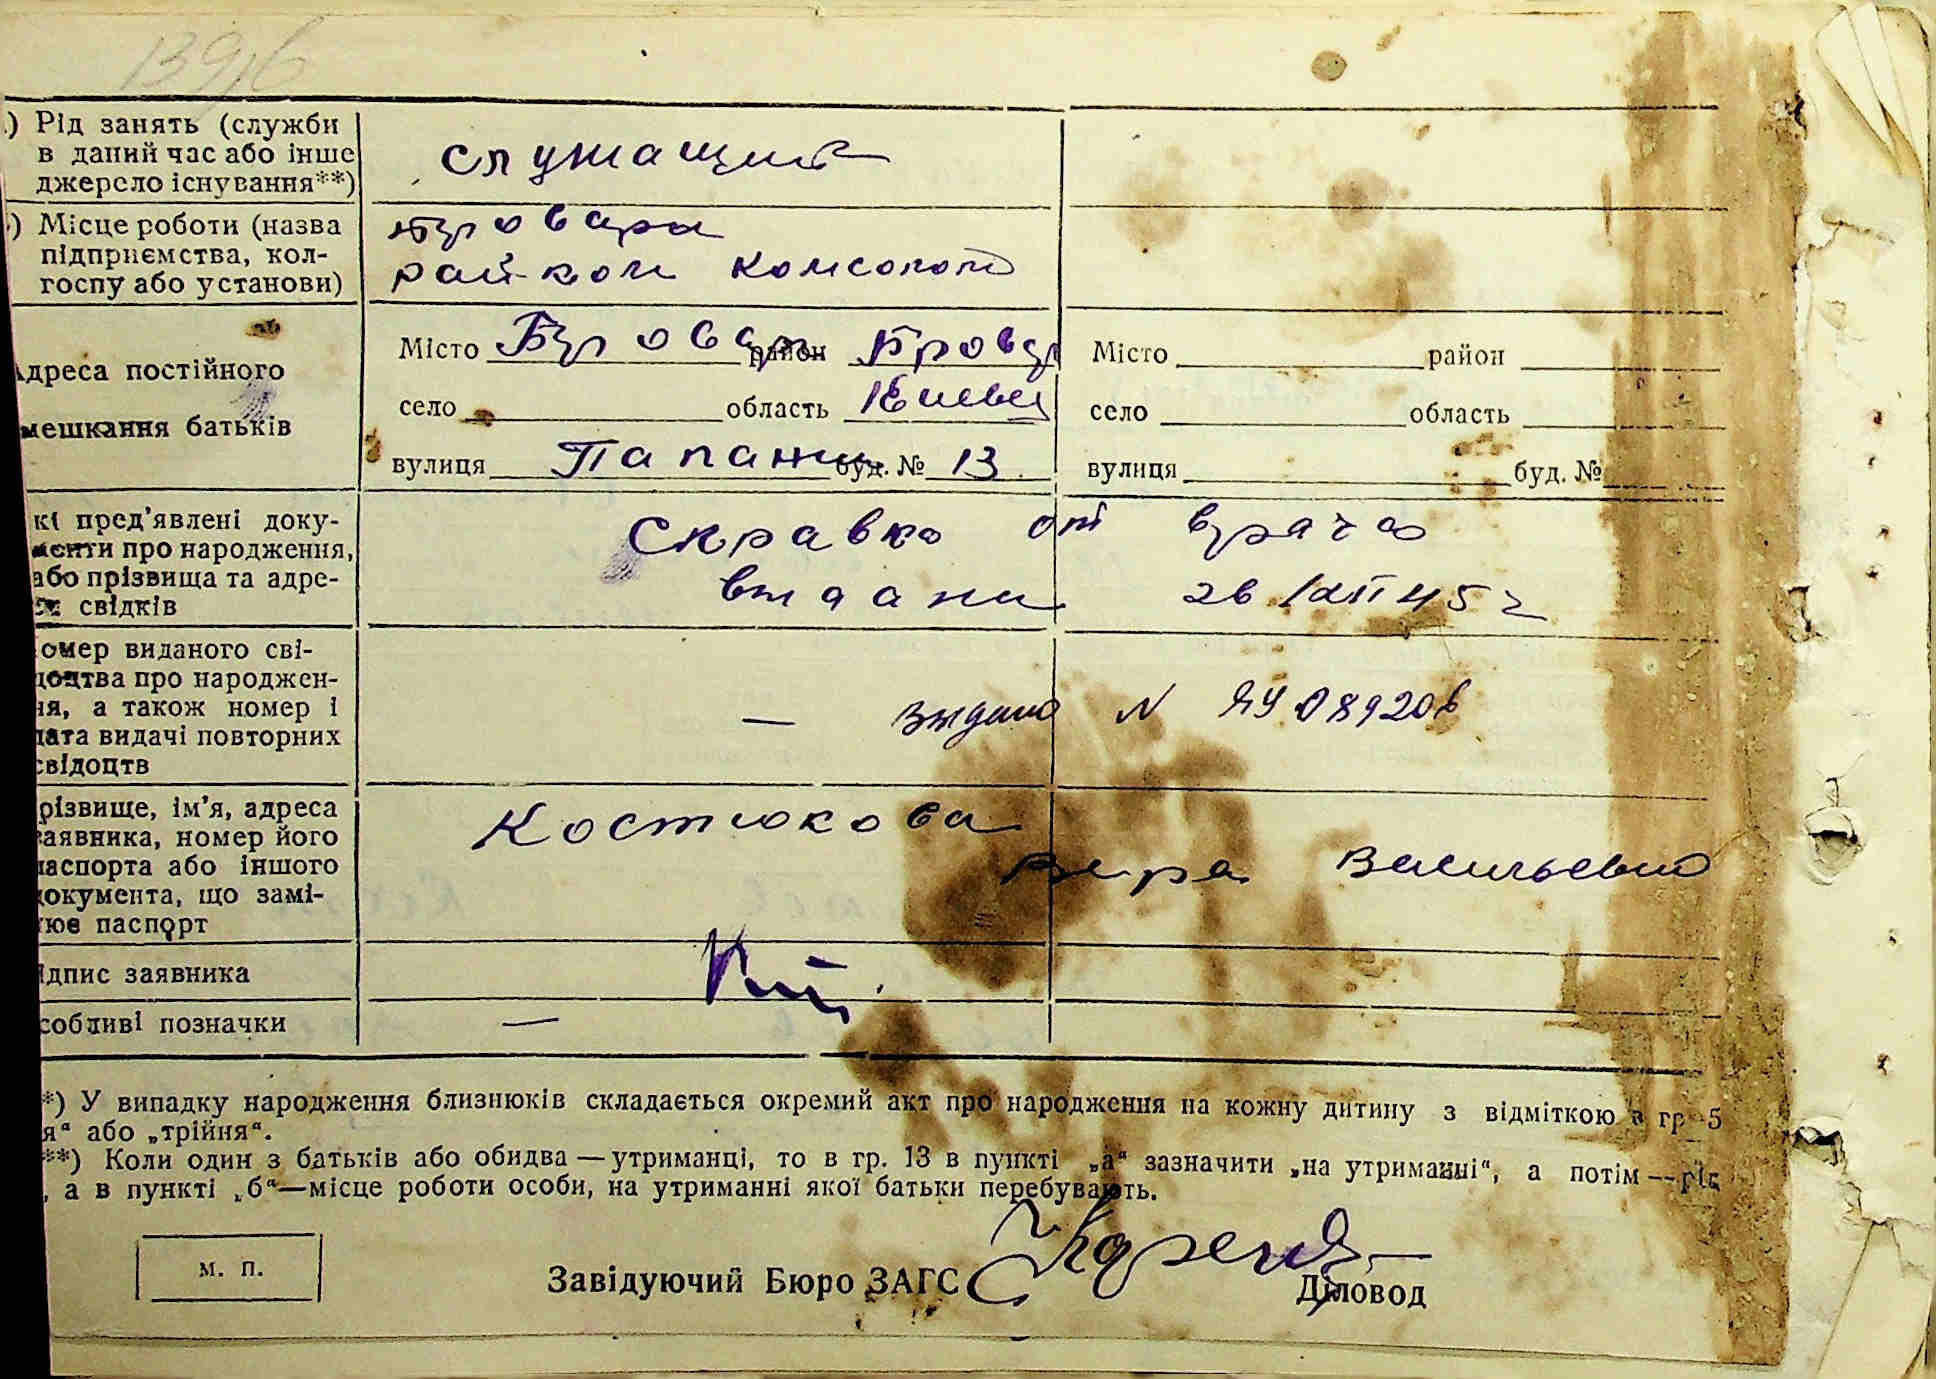 1396
) Рід занять (служби
в даний час або інше
джерело існування**)
служащий
) Місце роботи (назва
підприємства, кол-
госпу або установи)
Бровари
райком комсомол
Адреса постійного
мешкання батьків
Місто Бровар район Бровар
село область Киевск
вулиця Папани буд. № 13
Місто район
село область
вулиця буд. №
кі пред'явлені доку-
менти про народження,
або прізвища та адре-
си свідків
Справка от врача
выдана 26/XII 45 г
омер виданого сві-
доцтва про народжен-
ня, а також номер і
дата видачі повторних
свідоцтв
— Выдано N ЯУ 089206
різвище, ім'я, адреса
заявника, номер його
паспорта або іншого
документа, що замі-
ює паспорт
Костюкова
Вера Васильевна
ідпис заявника
собливі позначки —
*) У випадку народження близнюків складається окремий акт про народження на кожну дитину з відміткою в гр. 5
я“ або „трійня“.
**) Коли один з батьків або обидва — утриманці, то в гр. 13 в пункті „а“ зазначити „на утриманні“, а потім — рід
, а в пункті „б“ — місце роботи особи, на утриманні якої батьки перебувають.
м. п.
Завідуючий Бюро ЗАГС
Діловод